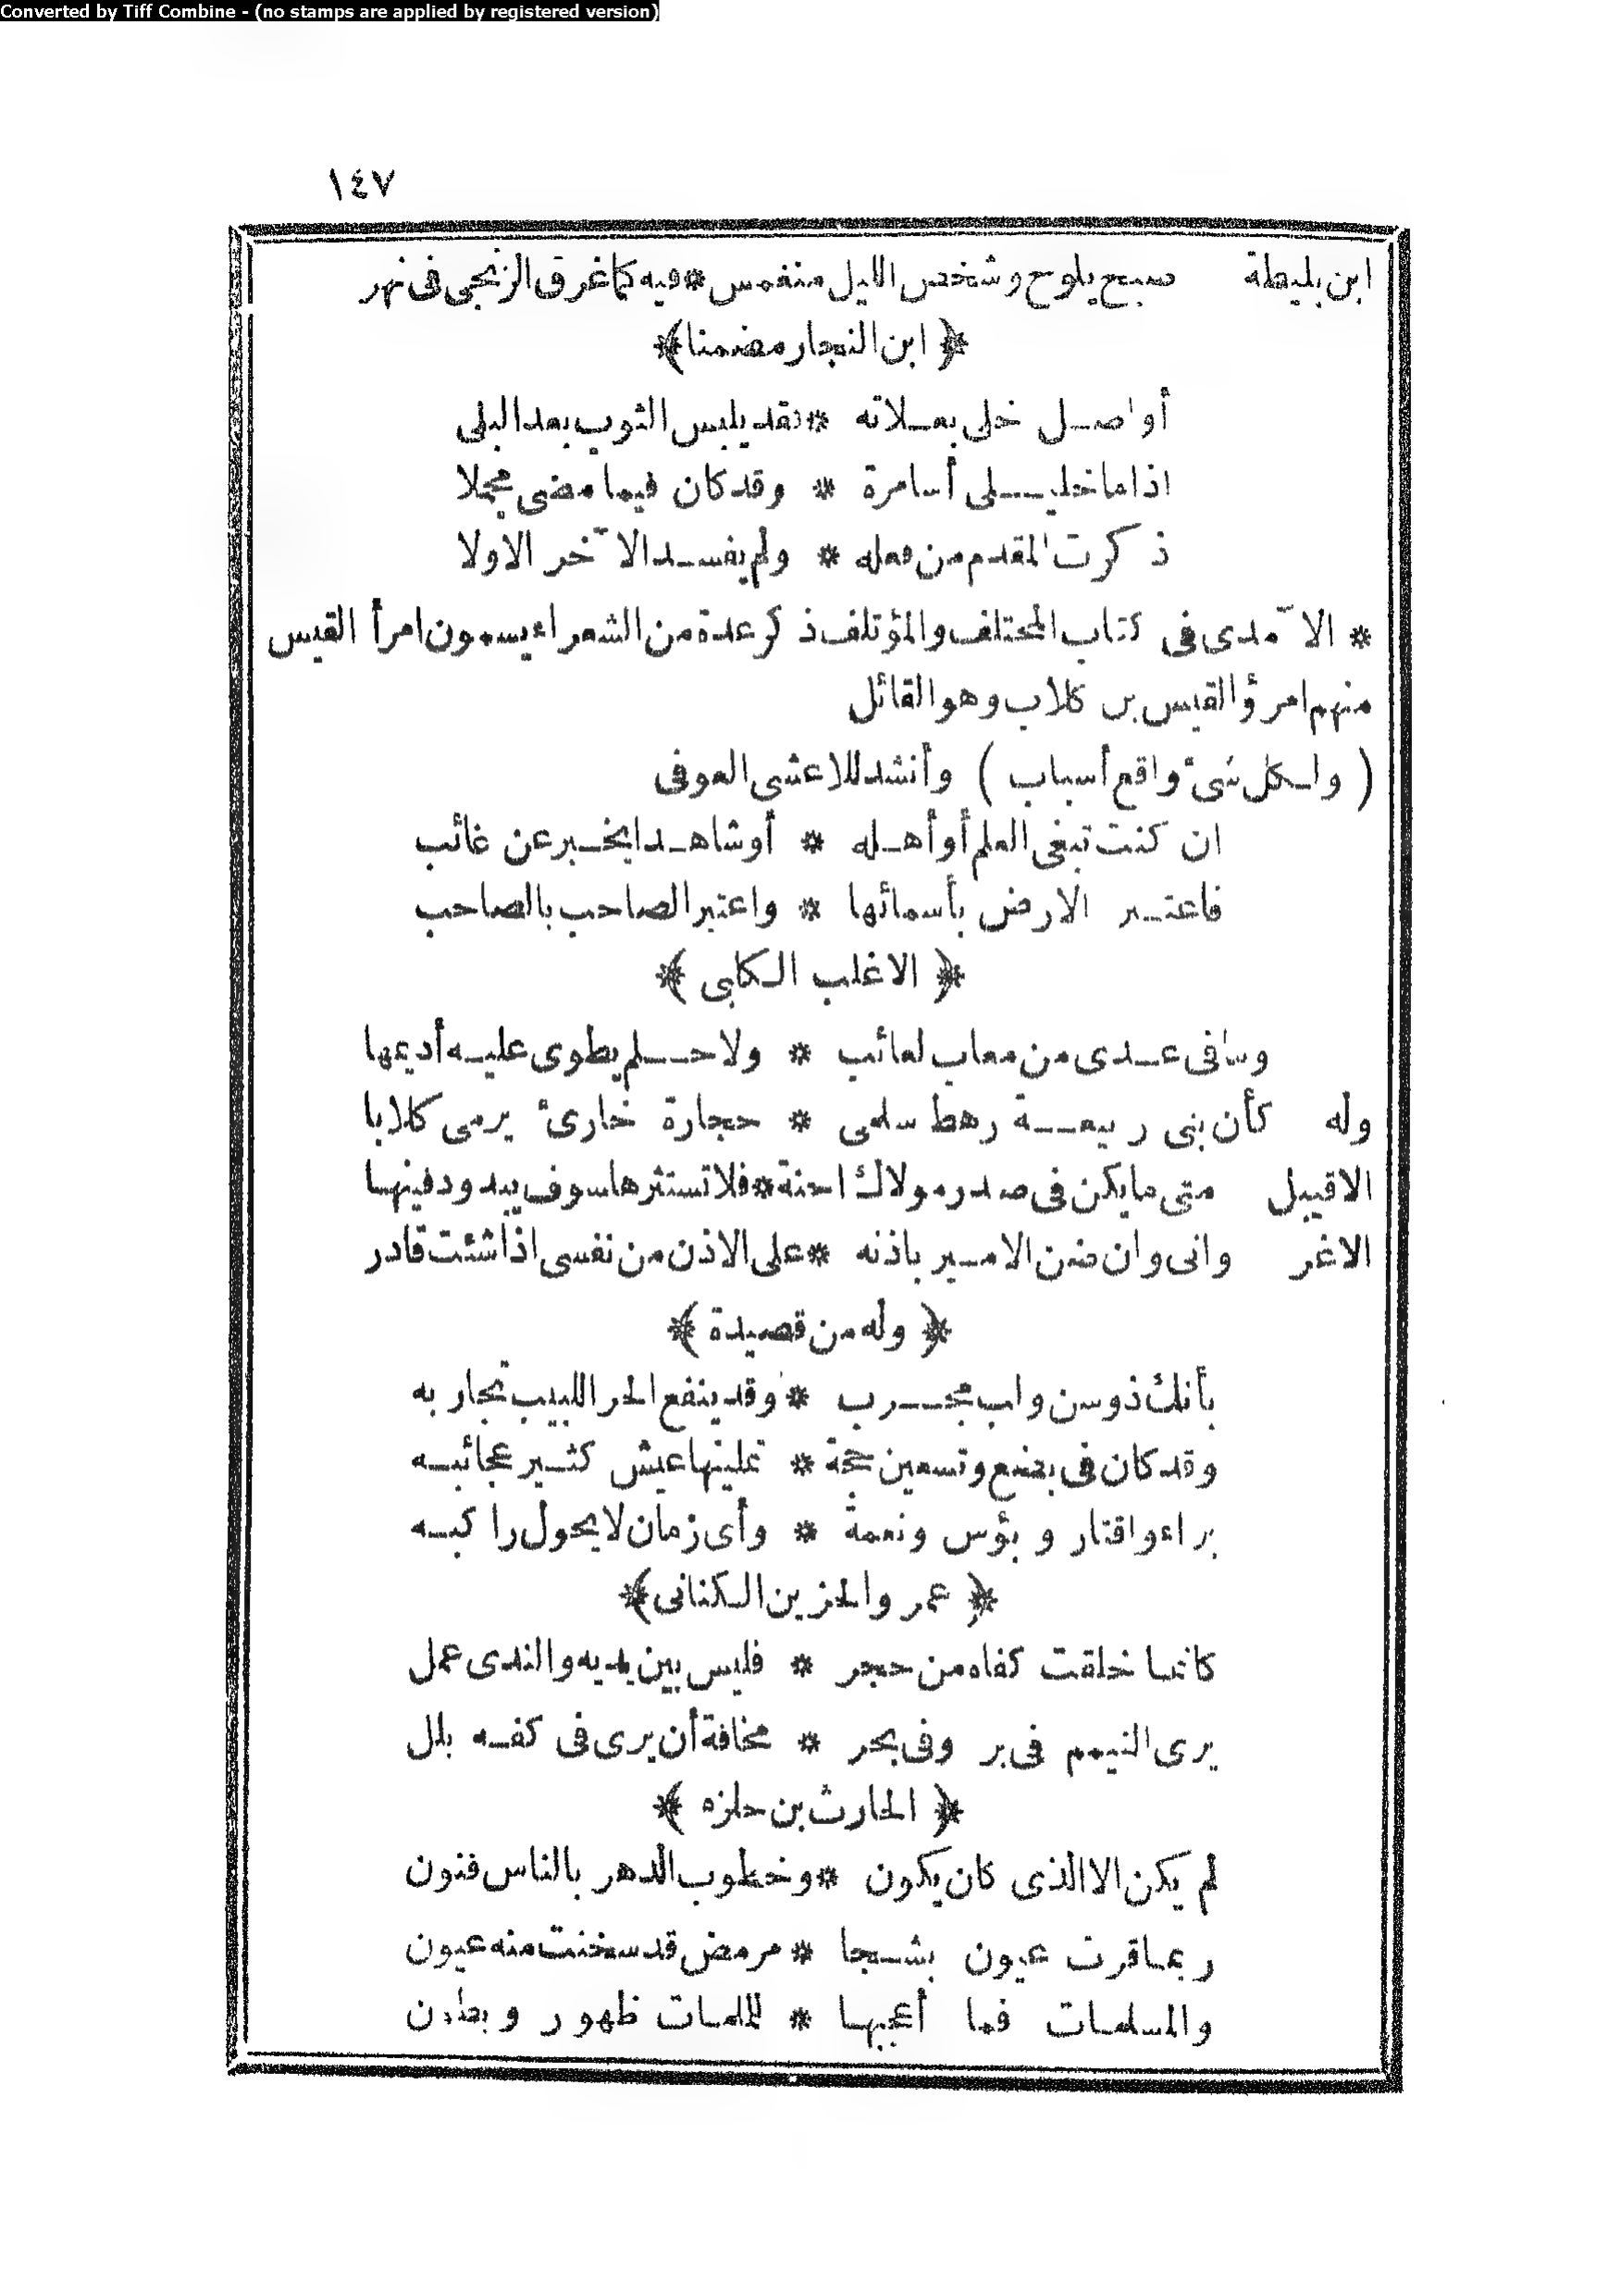 Converted by Tiff Combine - (no stamps are applied by registered version)
١٤٧
ابن بليطة صبح يلوح وشخص الليل منغمس * فيه كما غرق الزنجى فى نهر
﴿ ابن النجار مضمنا ﴾
أواصل خلى بعلاته * فقد يلبس الثوب بعد البلى
اذا ما خليلى أسا مرة * وقد كان فيما مضى مجملا
ذكرت المقدم من فعله * ولم يفسد الآخر الاولا
* الآمدى فى كتاب المختلف والمؤتلف ذكر عدة من الشعراء يسمون امرأ القيس
منهم امرؤ القيس بن كلاب وهو القائل
( ولكل شئ واقع أسباب ) وأنشد للاعشى العوفى
ان كنت تبغى العلم أو أهله * أو شاهدا يخبر عن غائب
فاعتبر الارض بأسمائها * واعتبر الصاحب بالصاحب
﴿ الاغلب الكلبى ﴾
وما فى عدى من معاب لعائب * ولا حلم يطوى عليه أديمها
وله كأن بنى ربيعة رهط سلمى * حجارة خارئ يرمى كلابا
الاقيبل متى ما يكن فى صدر مولاك احنة * فلا تستثرها سوف يبدو دفينها
الاغر وانى وان ضن الامير باذنه * على الاذن من نفسى اذا شئت قادر
﴿ وله من قصيدة ﴾
بأنك ذو سن ولب مجرب * وقد ينفع الحر اللبيب تجاربه
وقد كان فى بضع وتسعين حجة * تمليتها عيش كثير عجائبه
براء واقتار وبؤس ونعمة * وأى زمان لا يحول راكبه
﴿ عمرو الحزين الكنانى ﴾
كانما خلقت كفاه من حجر * فليس بين يديه والندى عمل
يرى التيمم فى بر وفى بحر * مخافة أن يرى فى كفه بلل
﴿ الحارث بن حلزه ﴾
لم يكن الا الذى كان يكون * وخطوب الدهر بالناس فنون
ربما قرت عيون بشجا * مرمض قد سخنت منه عيون
والملمات فما أعجبها * للملمات ظهور وبطون